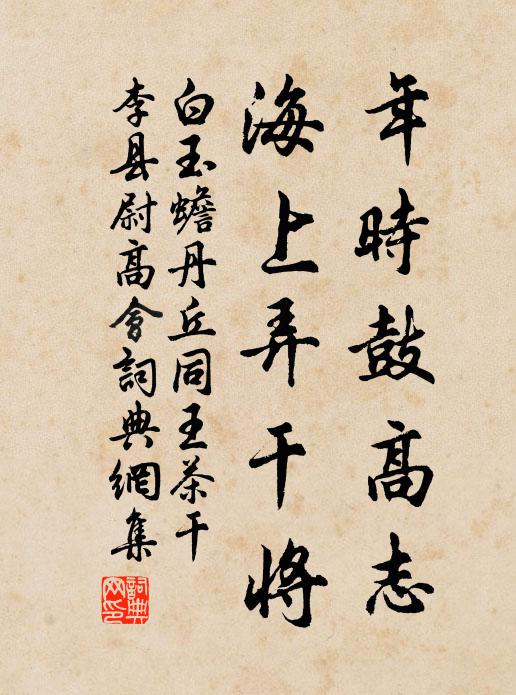 年時鼓高志
海上弄干將
白玉蟾丹丘同王茶干
李县尉高會詞典網集
詞典網印